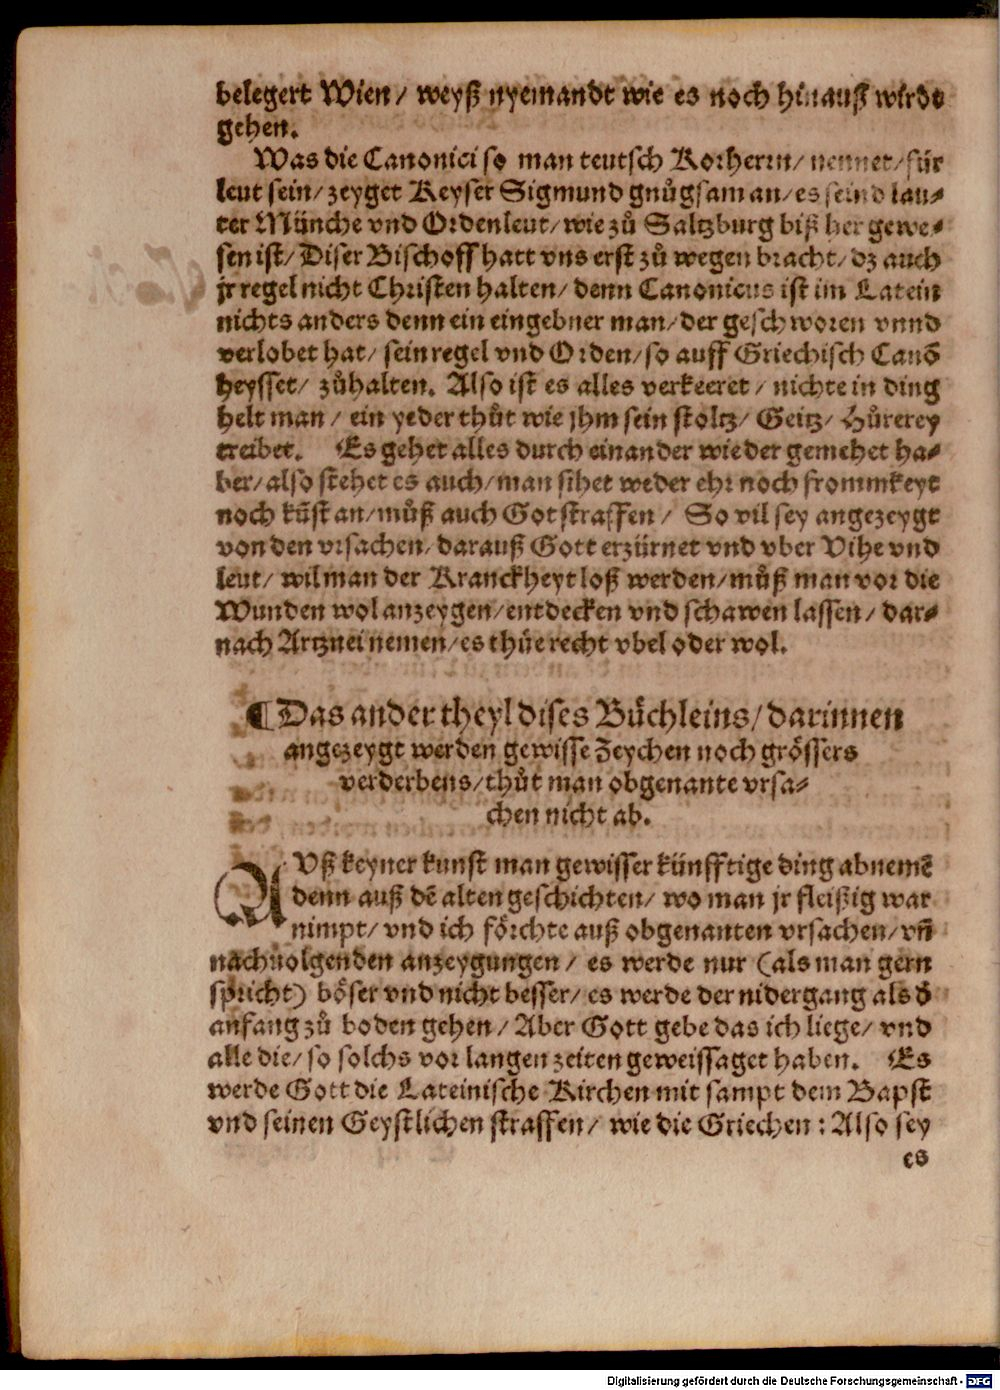 belegert Wien/ weyß nyemandt wie es noch hinauſſ wirdt
gehen.
Was die Canonici ſo man teutſch Korherrn/ nennet/ für
leut ſein/ zeyget Keyſer Sigmund gnůgſam an/ es ſeind lau-
ter Münche vnd Ordenleut/ wie zů Saltzburg biß her gewe-
ſen iſt/ Diſer Biſchoff hatt vns erſt zů wegen bracht/ dz auch
jr regel nicht Chriſten halten/ denn Canonicus iſt im Latein
nichts anders denn ein eingebner man/ der geſchworen vnnd
verlobet hat/ ſein regel vnd Orden/ ſo auff Griechiſch Canō
heyſſet/ zůhalten. Alſo iſt es alles verkeeret/ nichte in ding
helt man/ ein yeder thůt wie jhm ſein ſtoltz/ Geitz/ Hůrerey
treibet. Es gehet alles durch einander wie der gemehet ha-
ber/ alſo ſtehet es auch/ man ſihet weder ehr noch frommkeyt
noch kūſt an/ můß auch Got ſtraffen/ So vil ſey angezeygt
von den vrſachen/ darauß Gott erzürnet vnd vber Vihe vnd
leut/ wil man der Kranckheyt loß werden/ můß man vor die
Wunden wol anzeygen/ entdecken vnd ſchawen laſſen/ dar-
nach Artznei nemen/ es thüe recht vbel oder wol.
¶ Das ander theyl diſes Büchleins/ darinnen
angezeygt werden gewiſſe Zeychen noch gröſſers
verderbens/ thůt man obgenante vrſa-
chen nicht ab.
AVß keyner kunſt man gewiſſer künfftige ding abnemē
denn auß dē alten geſchichten/ wo man jr fleißig war
nimpt/ vnd ich förchte auß obgenanten vrſachen/ vñ
nachuolgenden anzeygungen/ es werde nur (als man gern
ſpricht) böſer vnd nicht beſſer/ es werde der nidergang als d̄
anfang zů boden gehen/ Aber Gott gebe das ich liege/ vnd
alle die/ ſo ſolchs vor langen zeiten geweiſſaget haben. Es
werde Gott die Lateiniſche Kirchen mit ſampt dem Bapſt
vnd ſeinen Geyſtlichen ſtraffen/ wie die Griechen: Alſo ſey
es
Digitalisierung gefördert durch die Deutsche Forschungsgemeinschaft - DFG